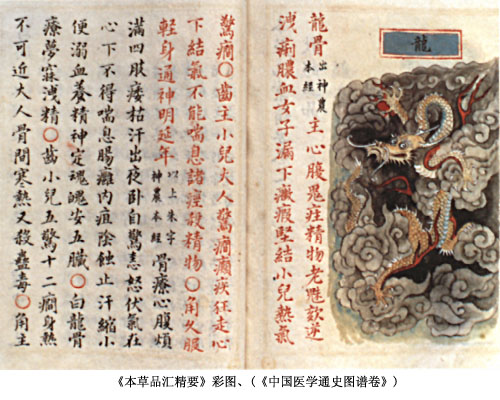 龍
龍骨出神農本經主心腹鬼疰精物老魅欬逆
洩痢膿血女子漏下癥瘕堅結小兒熱氣
驚癇○齒主小兒大人驚癇癲疾狂走心
下結氣不能喘息諸痙殺精物○角久服
輕身通神明延年以上朱字神農本經骨療心腹煩
滿四肢痿枯汗出夜臥自驚恚怒伏氣在
心下不得喘息腸癰內疽陰蝕止汗縮小
便溺血養精神定魂魄安五臟○白龍骨
療夢寐洩精○齒小兒五驚十二癇身熱
不可近大人骨間寒熱又殺蠱毒○角主
《本草品汇精要》彩图、(《中国医学通史图谱卷》)